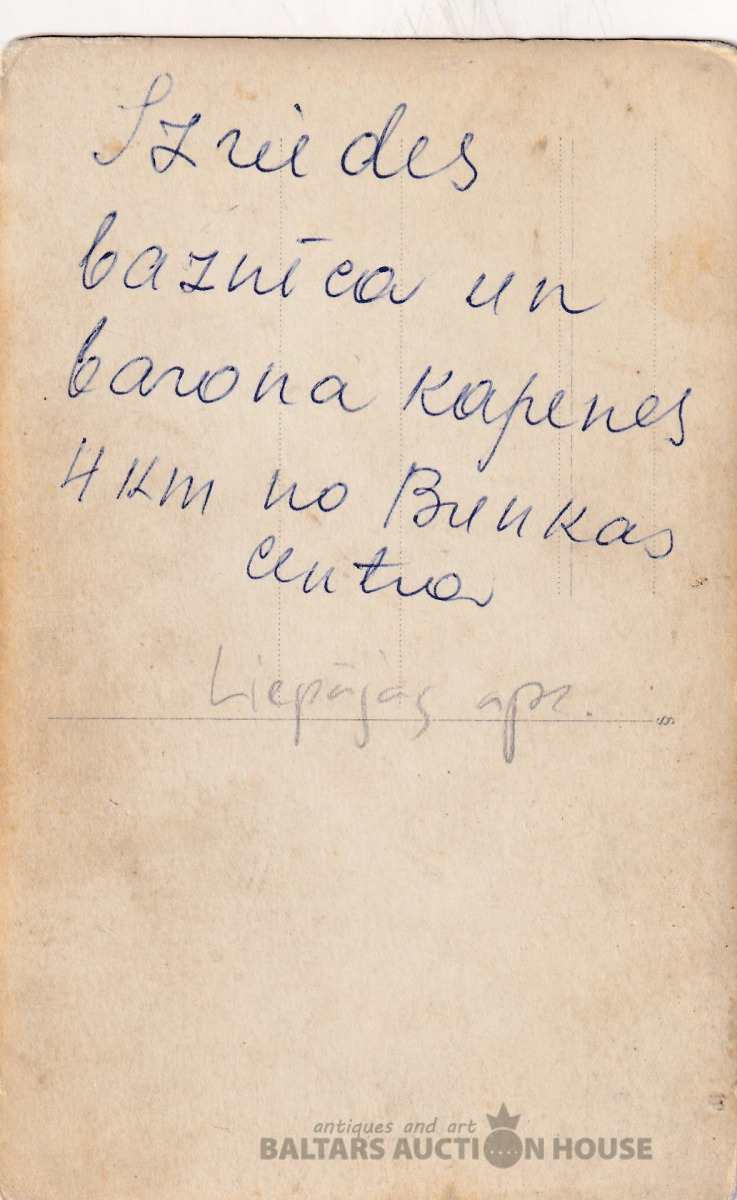 Izriedes
baznīca un
barona kapenes
4 km no Bunkas
centra
Liepājas apr.
antiques and art
BALTARS AUCTION HOUSE